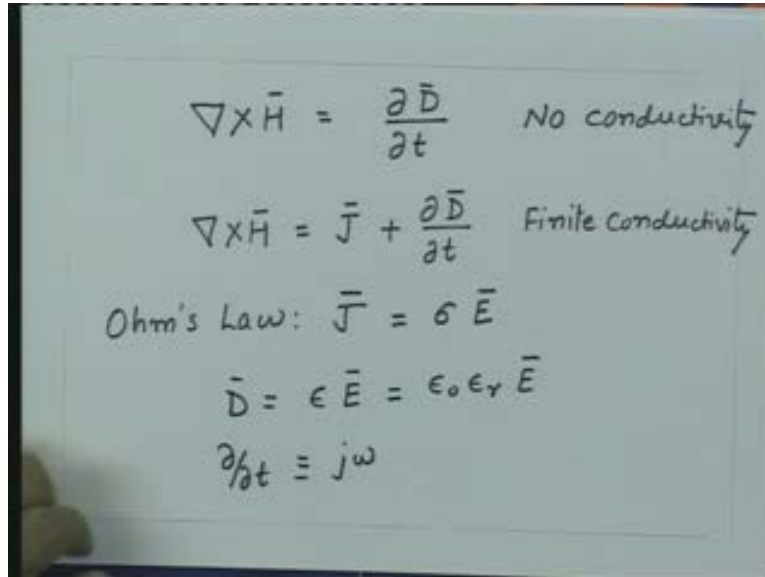 ∇×H̄ = ∂D̄/∂t No conductivity
∇×H̄ = J̄ + ∂D̄/∂t Finite conductivity
Ohm's Law: J̄ = σ Ē
D̄ = ϵ Ē = ϵ₀ϵᵣ Ē
∂/∂t ≡ jω